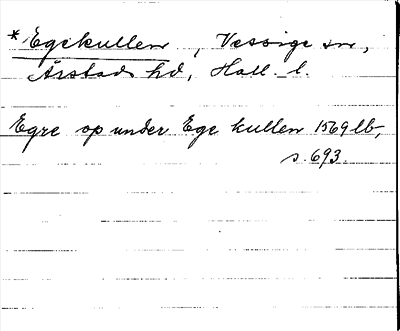 * Egekullen, Vessige sn,
Årstads hd, Hall. l.
Egre op under Ege kullen 1569 lb,
s. 693.